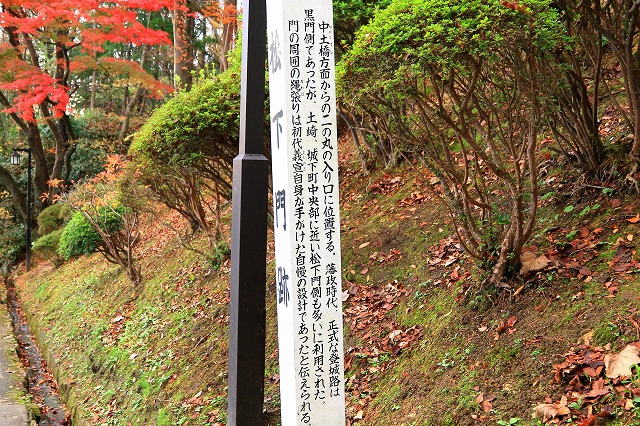 松下門跡
中土橋方面からの二の丸の入り口に位置する。藩政時代、正式な登城路は
黒門側であったが、土崎、城下町中央部に近い松下門側も多いに利用された。
門の周囲の縄張りは初代義宣自身が手がけた自慢の設計であったと伝えられる。